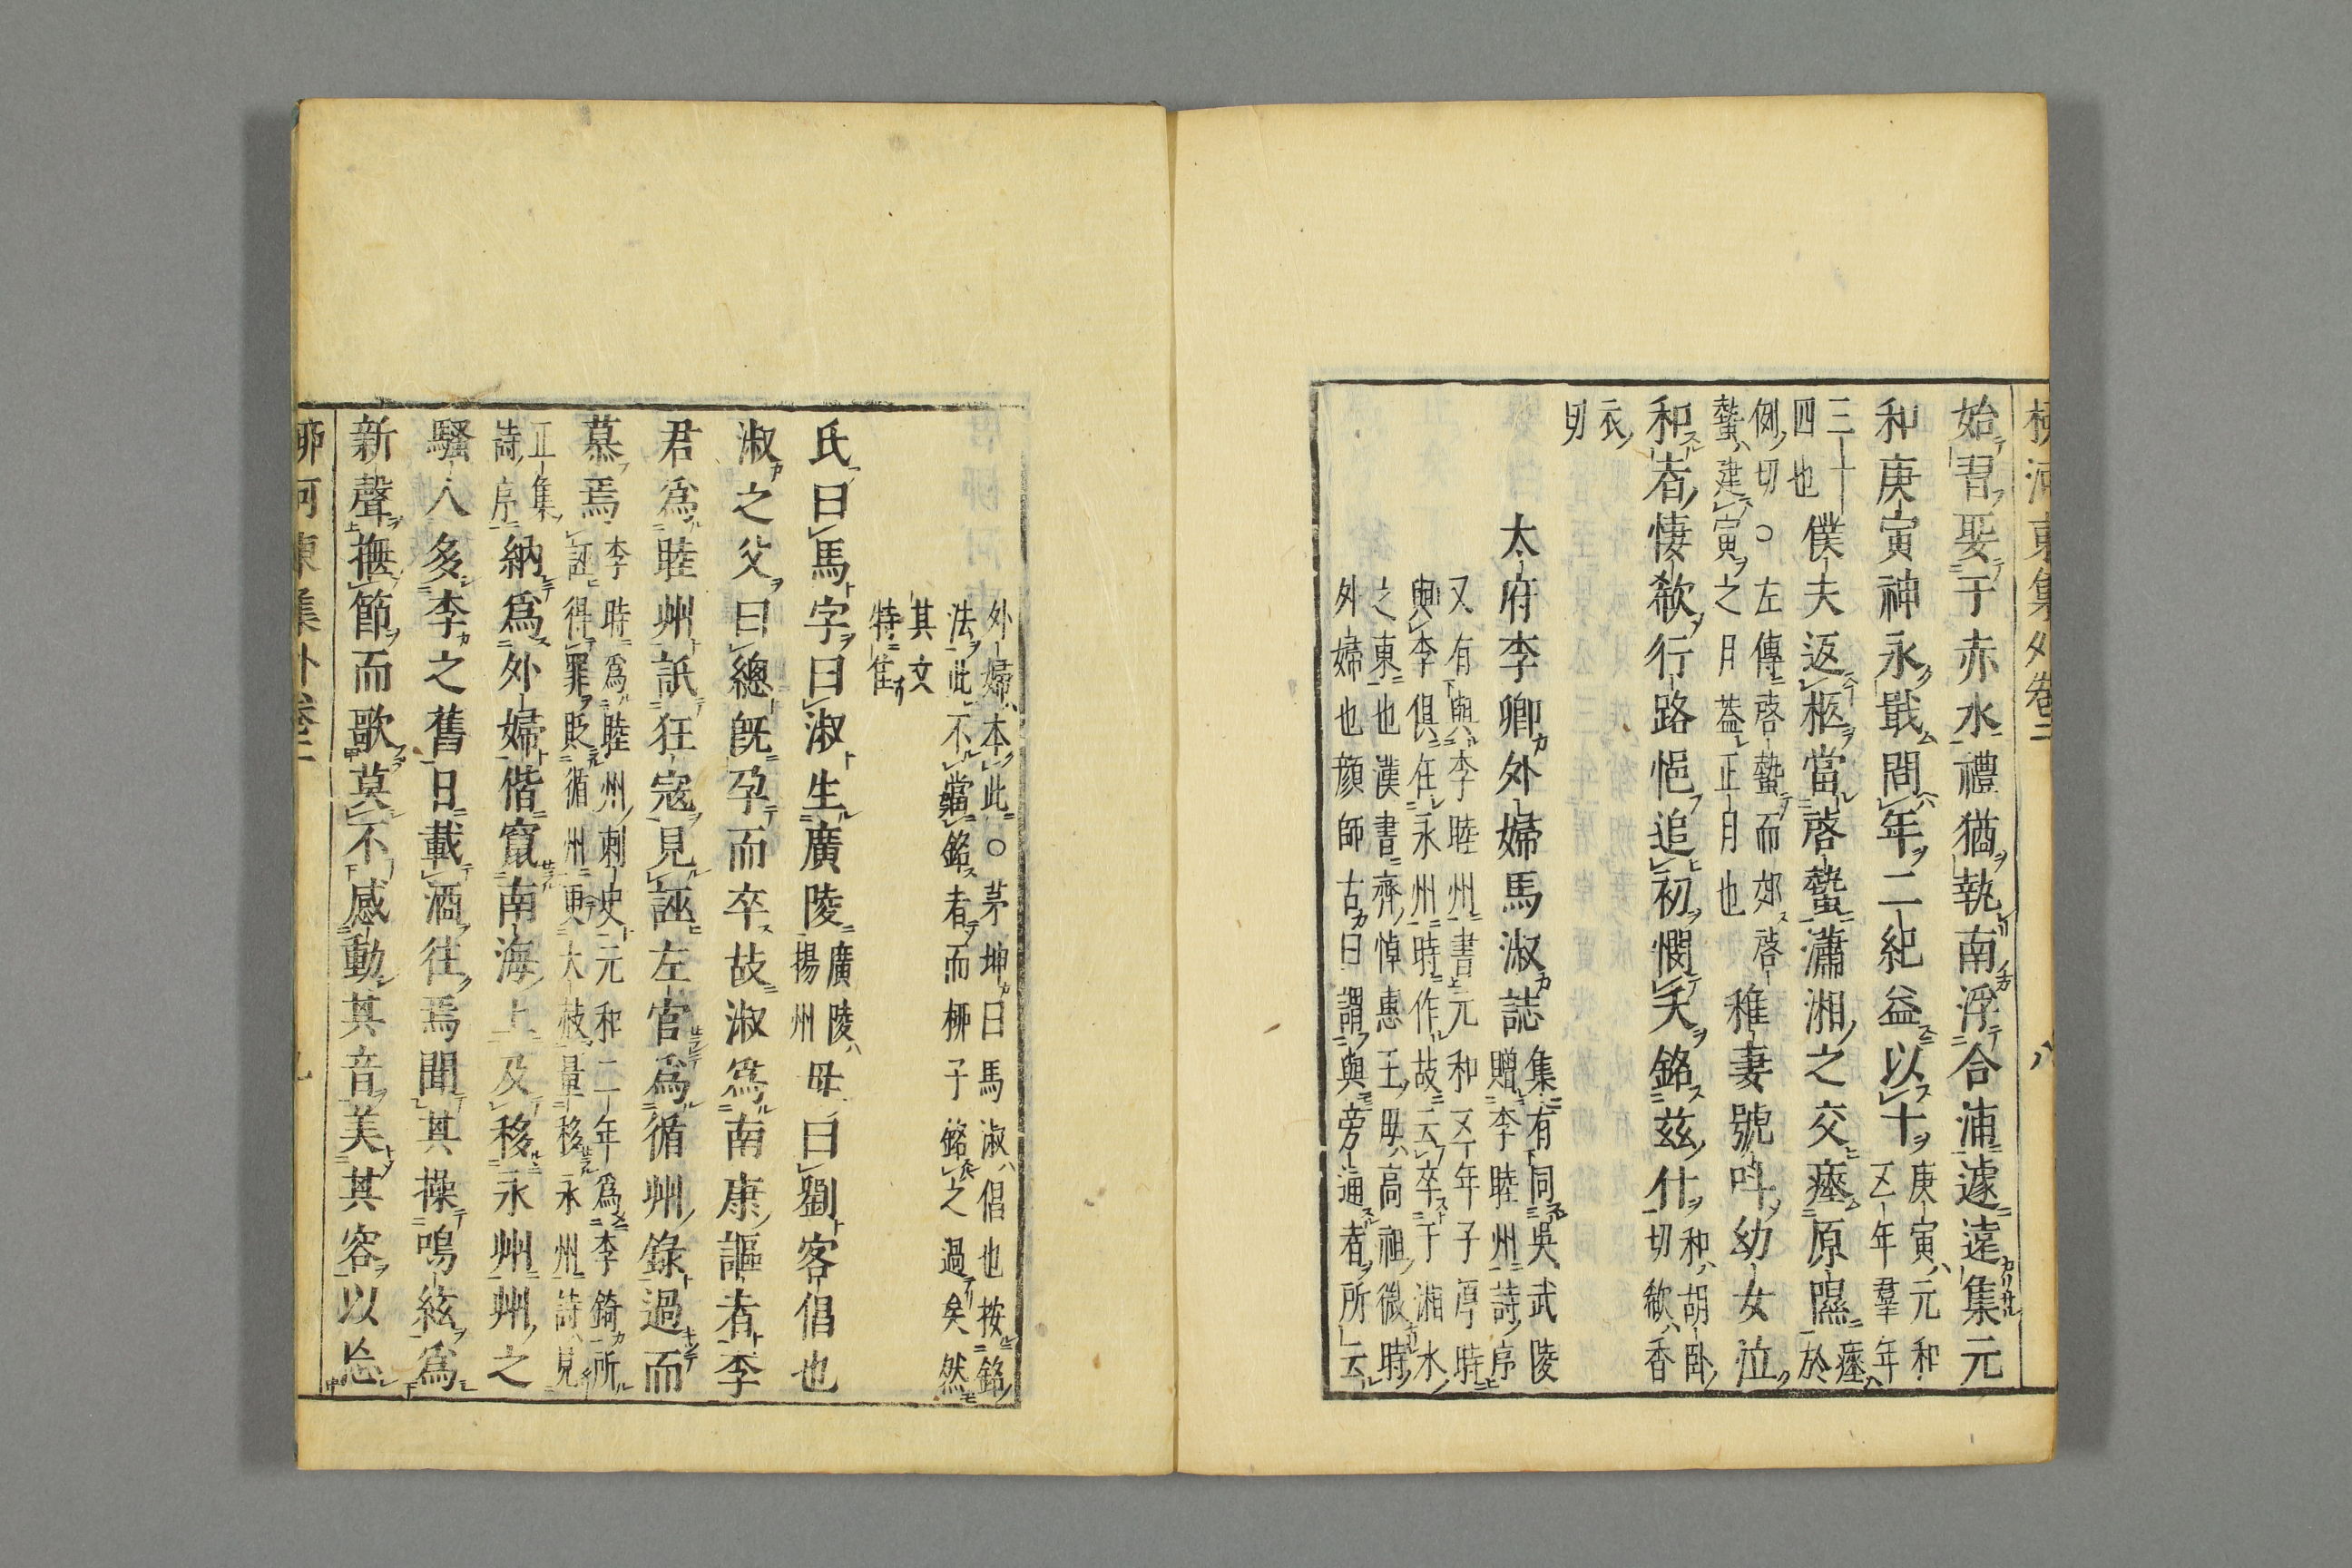 柳河東集外卷二 八
始君娶于赤水禮猶執南浮合浦遽遠集元
和庚寅神永戢問年二紀益以十庚寅元和
五年羣年
三十
四也僕夫返柩當啓蟄瀟湘之交瘞原隰瘞於
例切○左傳啓蟄而郊啓
蟄建寅之月葢正月也稚妻號呌幼女泣
和者悽欷行路悒追初憫夭銘茲什和胡卧
切欷香
衣
切
太府李卿外婦馬淑誌集有同吳武陵
贈李睦州詩序
又有與李睦州書元和五年子厚時
與李俱在永州時作故云卒于湘水
之東也漢書齊悼惠王母高祖微時
外婦也顏師古曰謂與旁通者所云
外婦本此○茅坤曰馬淑倡也按銘
法此不當銘者而柳子銘之過矣然
其文
特雋
氏曰馬字曰淑生廣陵廣陵
揚州母曰劉客倡也
淑之父曰總旣孕而卒故淑爲南康謳者李
君爲睦州詆狂寇見誣左官爲循州錄過而
慕焉李時爲睦州刺史元和二年爲李錡所
誣得罪貶循州更大赦量移永州詩見
正集
詩序納爲外婦偕竄南海上及移永州州之
騷人多李之舊日載酒往焉聞其操鳴絃爲
新聲撫節而歌莫不感動其音美其容以忘
柳河東集外卷二 九